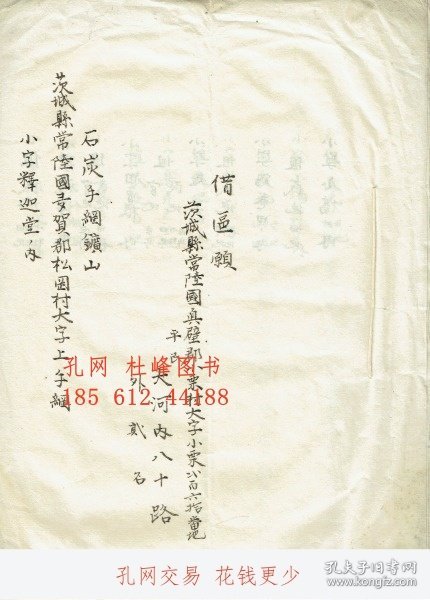 借區願
茨城縣常陸國真壁郡小栗村大字小栗八百六拾番地
平民
大河内八十路
外貳名
石炭手綱鑛山
茨城縣常陸國多賀郡松岡村大字上手綱
小字釋迦堂ノ内
孔网 杜峰图书
185 612 44188
孔网交易 花钱更少
孔夫子旧书网
www.kongfz.com